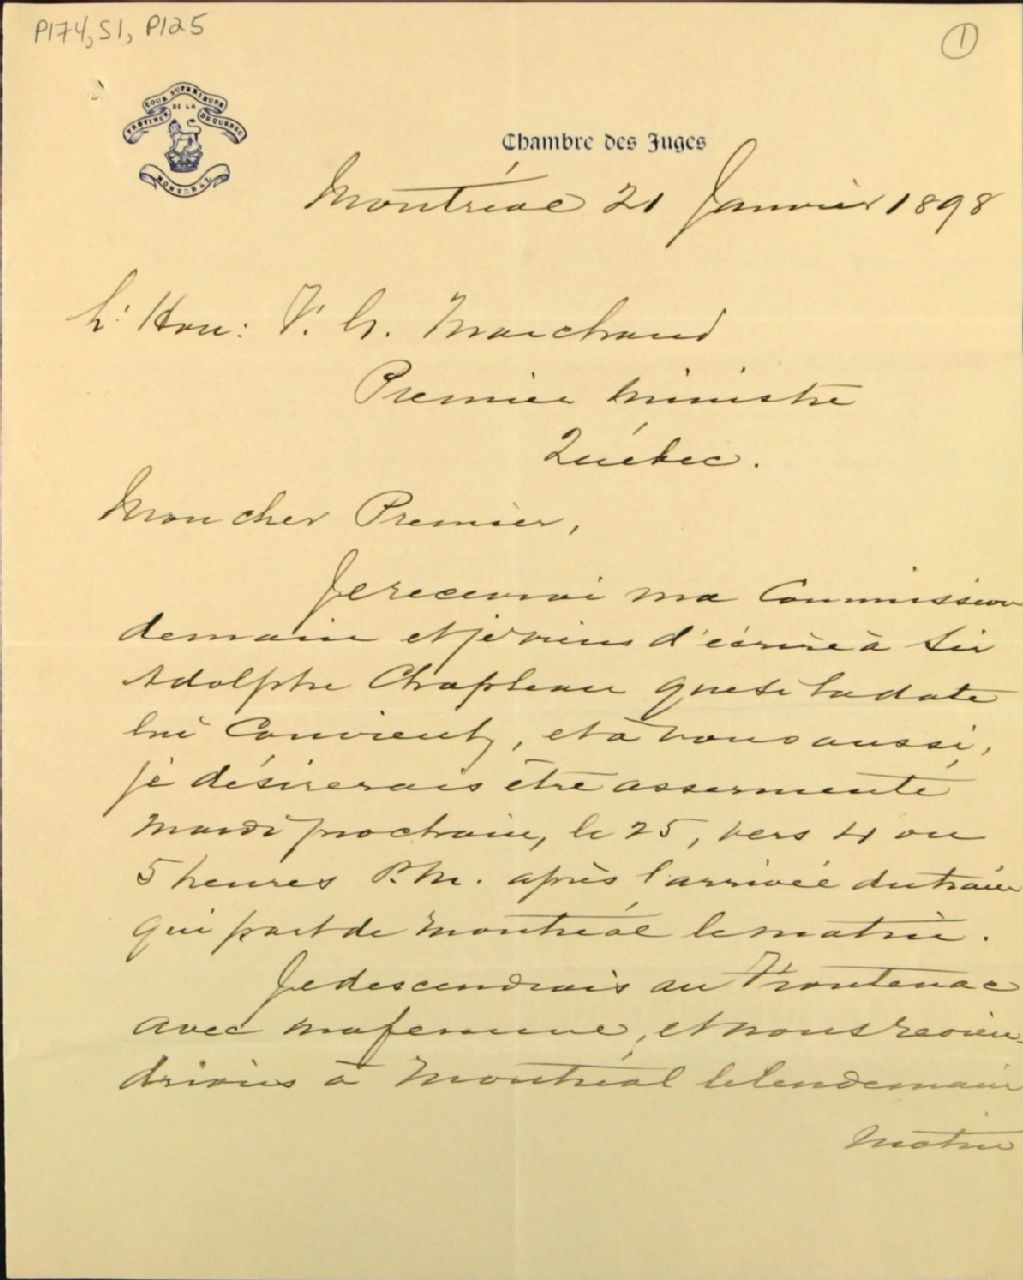 P174, S1, P125
1
COUR SUPERIEURE
DE LA
PROVINCE DE QUEBEC
MONTREAL
Chambre des Juges
Montréal 21 Janvier 1898
L'Hon: F. G. Marchand
Premier Ministre
Québec.
Mon cher Premier,
Je recevrai ma Commission
demain et je viens d'écrire à Sir
Adolphe Chapleau que si la date
lui Convient, et à vous aussi,
je désirerais être assermenté
mardi prochain, le 25, vers 4 ou
5 heures P.M. après l'arrivée du train
qui part de Montréal le matin.
Je descendrais au Frontenac
avec ma femme, et nous revien-
drions à Montréal le lendemain
matin